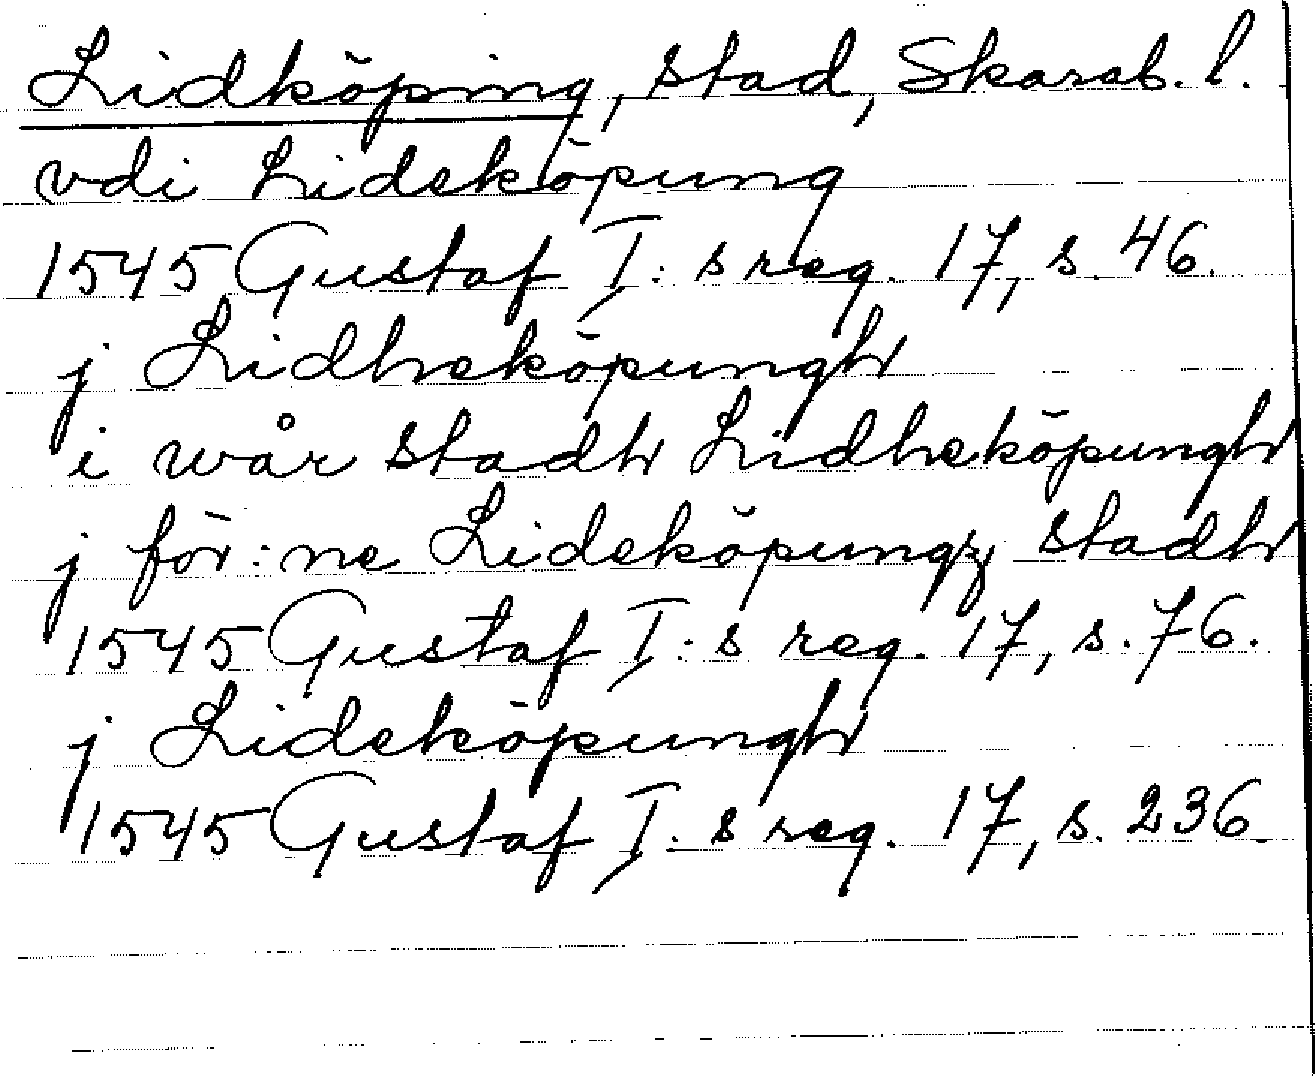 Lidköping, stad, Skarab. l.
vdi Lideköpung
1545 Gustaf I: s reg. 17, s. 46.
j Lidheköpungh
i wår stadh Lidheköpungh
j för:ne Lideköpungz stadh
1545 Gustaf I: s reg. 17, s. 76.
j Lideköpungh
1545 Gustaf I: s reg. 17, s. 236.